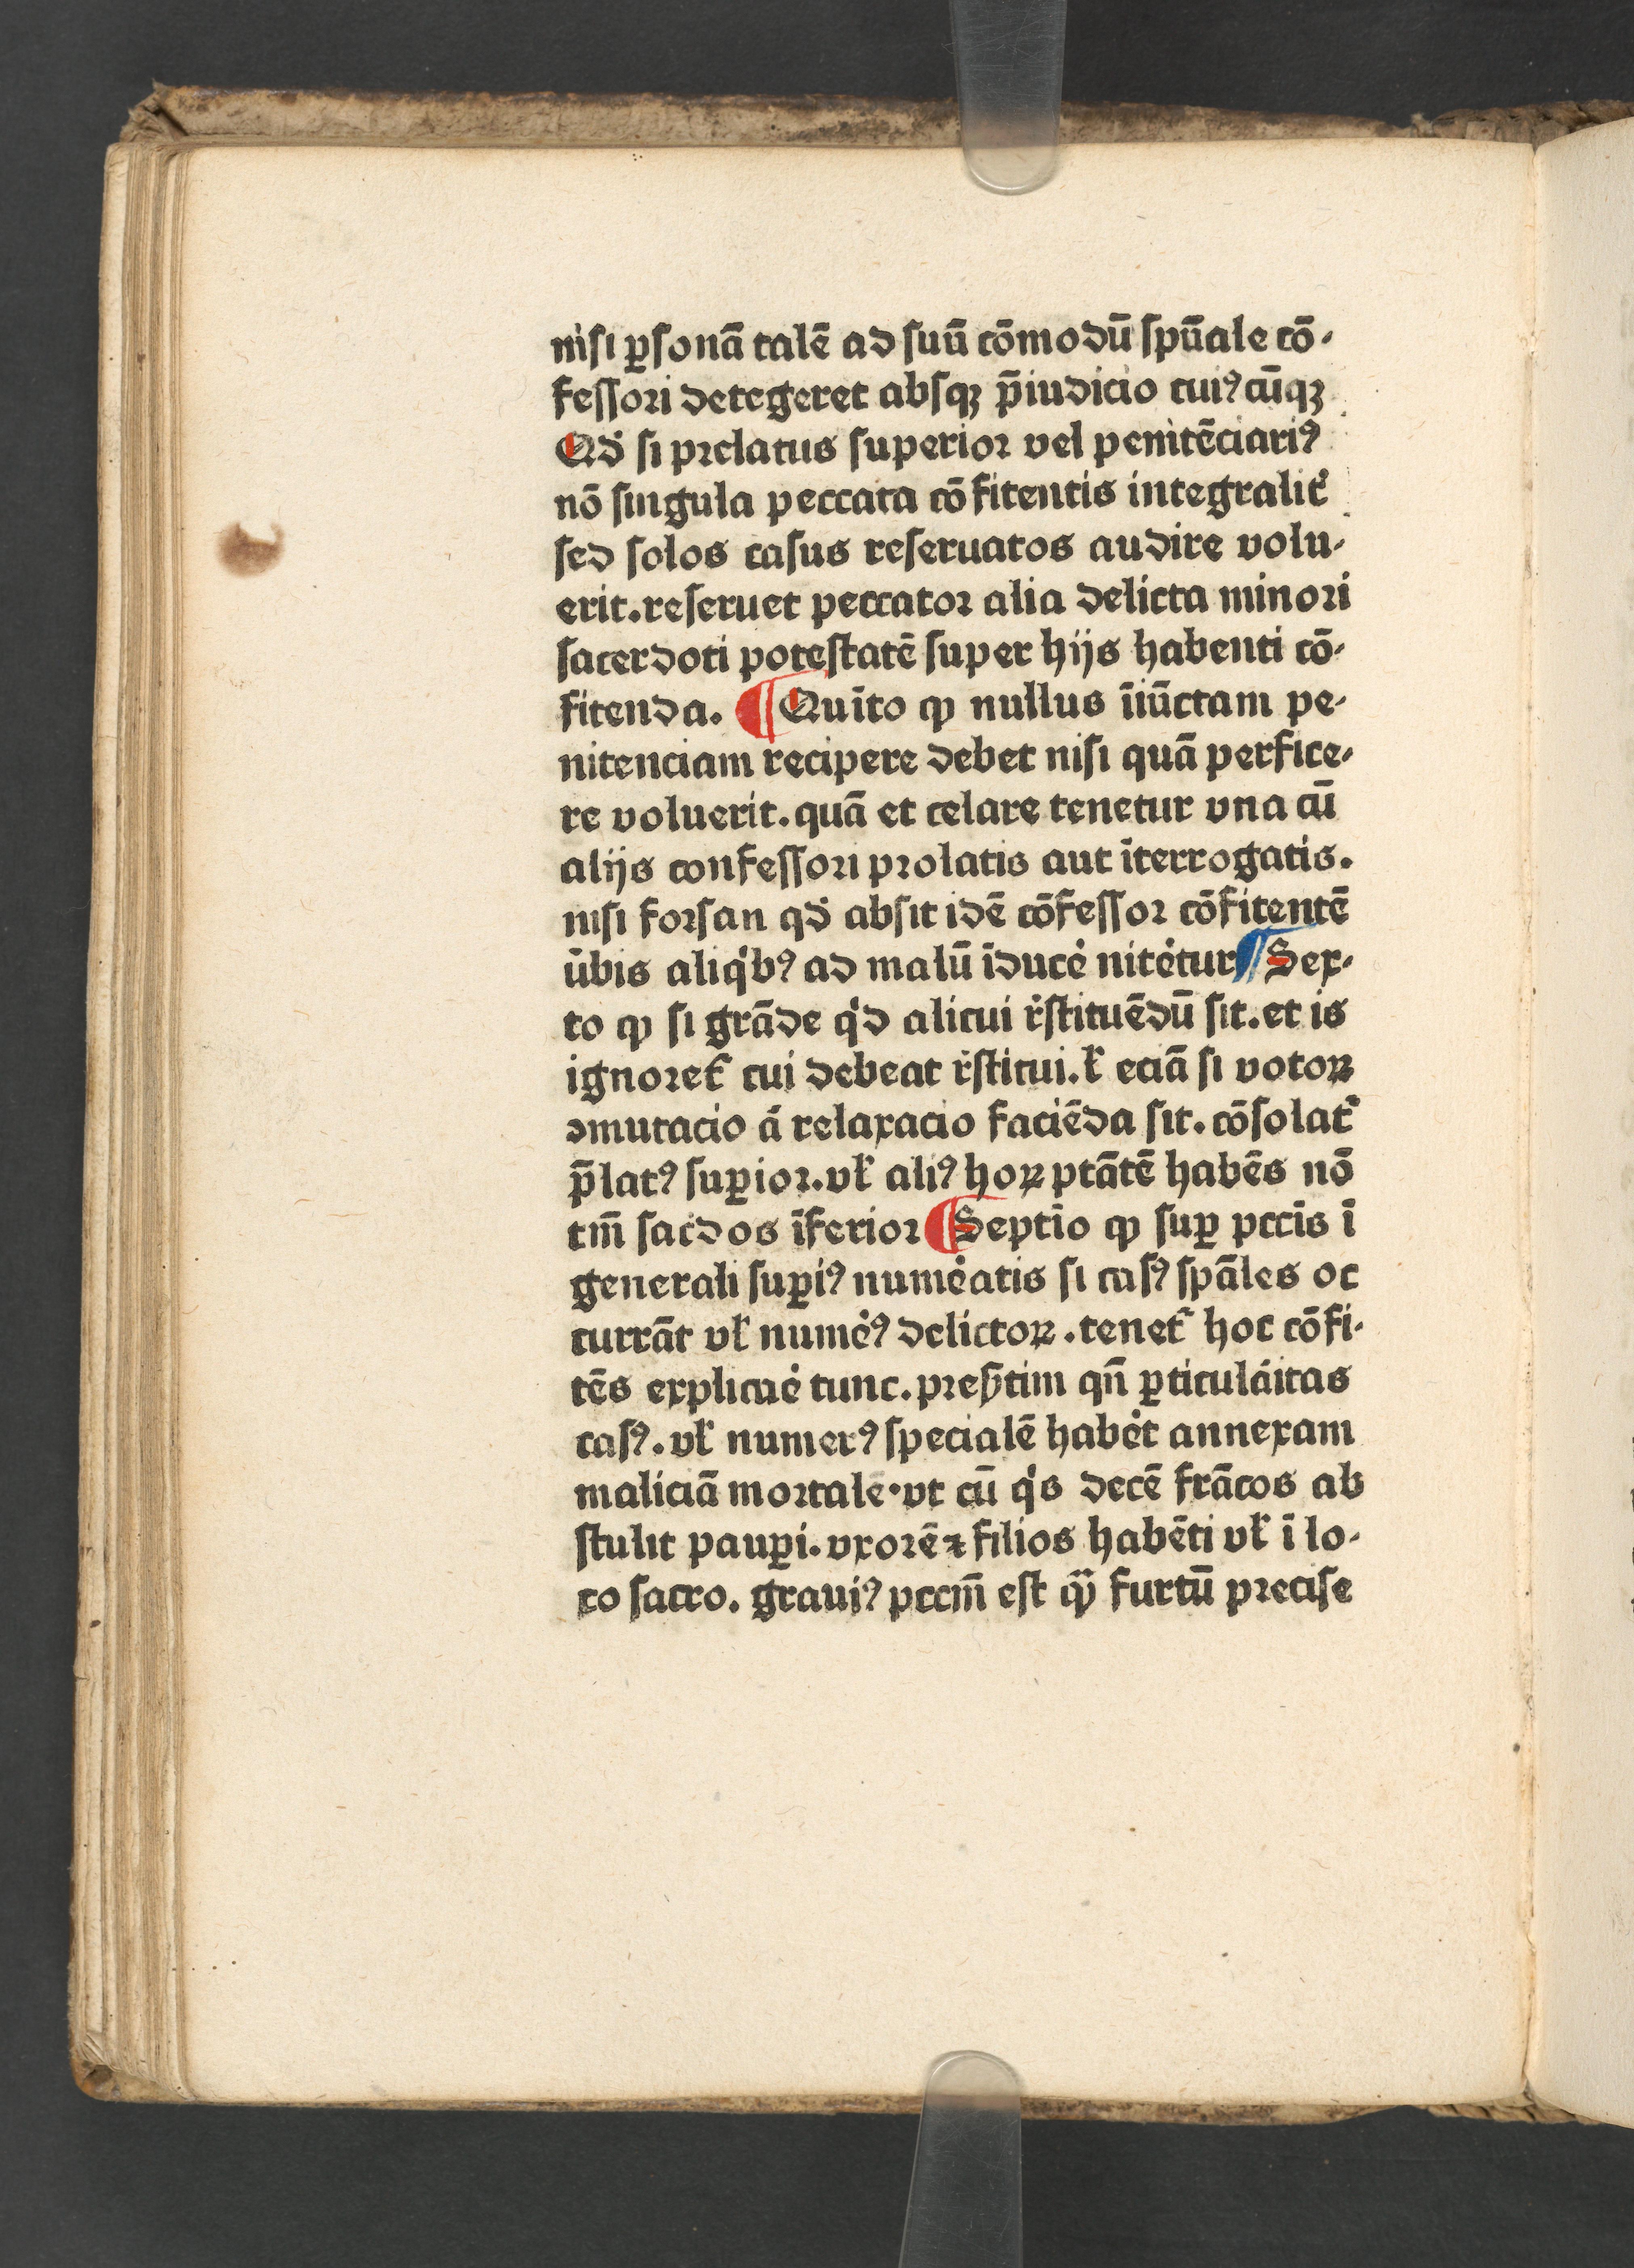 niſi ꝑſonā talē ad ſuū cōmodū ſpūale cō⸗
feſſori detegeret abſqꝫ p̄iudicio cuiꝰcūqꝫ
Qd̕ ſi prelatus ſuperior vel penitēciariꝰ
nō ſingula peccata cōfitentis integralit̕
ſed ſolos caſus reſeruatos audire volu⸗
erit.reſeruet peccator alia delicta minori
ſacerdoti poteſtatē ſuper hijs habenti cō⸗
fitenda. ¶ Quīto ꝙ nullus īiūctam pe⸗
nitenciam recipere debet niſi quā perfice⸗
re voluerit.quā et celare tenetur vna cū
alijs confeſſori prolatis aut īterrogatis.
niſi forſan qd̕ abſit idē cōfeſſor cōfitentē
ūbis aliq̕bꝰ ad malū īduce̕ nite̕tur ¶ Sex⸗
to ꝙ ſi grāde q̕d alicui r̕ſtituēdū ſit.et is
ignoret̕ cui debeat r̕ſtitui.ł eciā ſi votoꝝ
ꝯmutacio a̕ relaxacio faciēda ſit.cōſolat̕
p̄latꝰ ſuꝑior.vł aliꝰ hoꝝ ptātē habēs nō
tm̄ ſac̕dos īferior ¶ Septīo ꝙ ſuꝑ pccīs ī
generali ſuꝑiꝰ nume̕atis ſi caſꝰ ſpāles oc
currāt vł nume̕ꝰ delictoꝝ.tenet̕ hoc cōfi⸗
tēs explicare̕ tunc.preẜtim qn̄ ꝑticula̕itas
caſꝰ.vł numerꝰ ſpecialē habe̕t annexam
maliciā mortalē.vt cū q̕s decē frācos ab
ſtulit pauꝑi.vxorē ⁊ filios habēti vł ī lo⸗
co ſacro. grauiꝰ pccm̄ eſt ꝙ̄ furtū preciſe